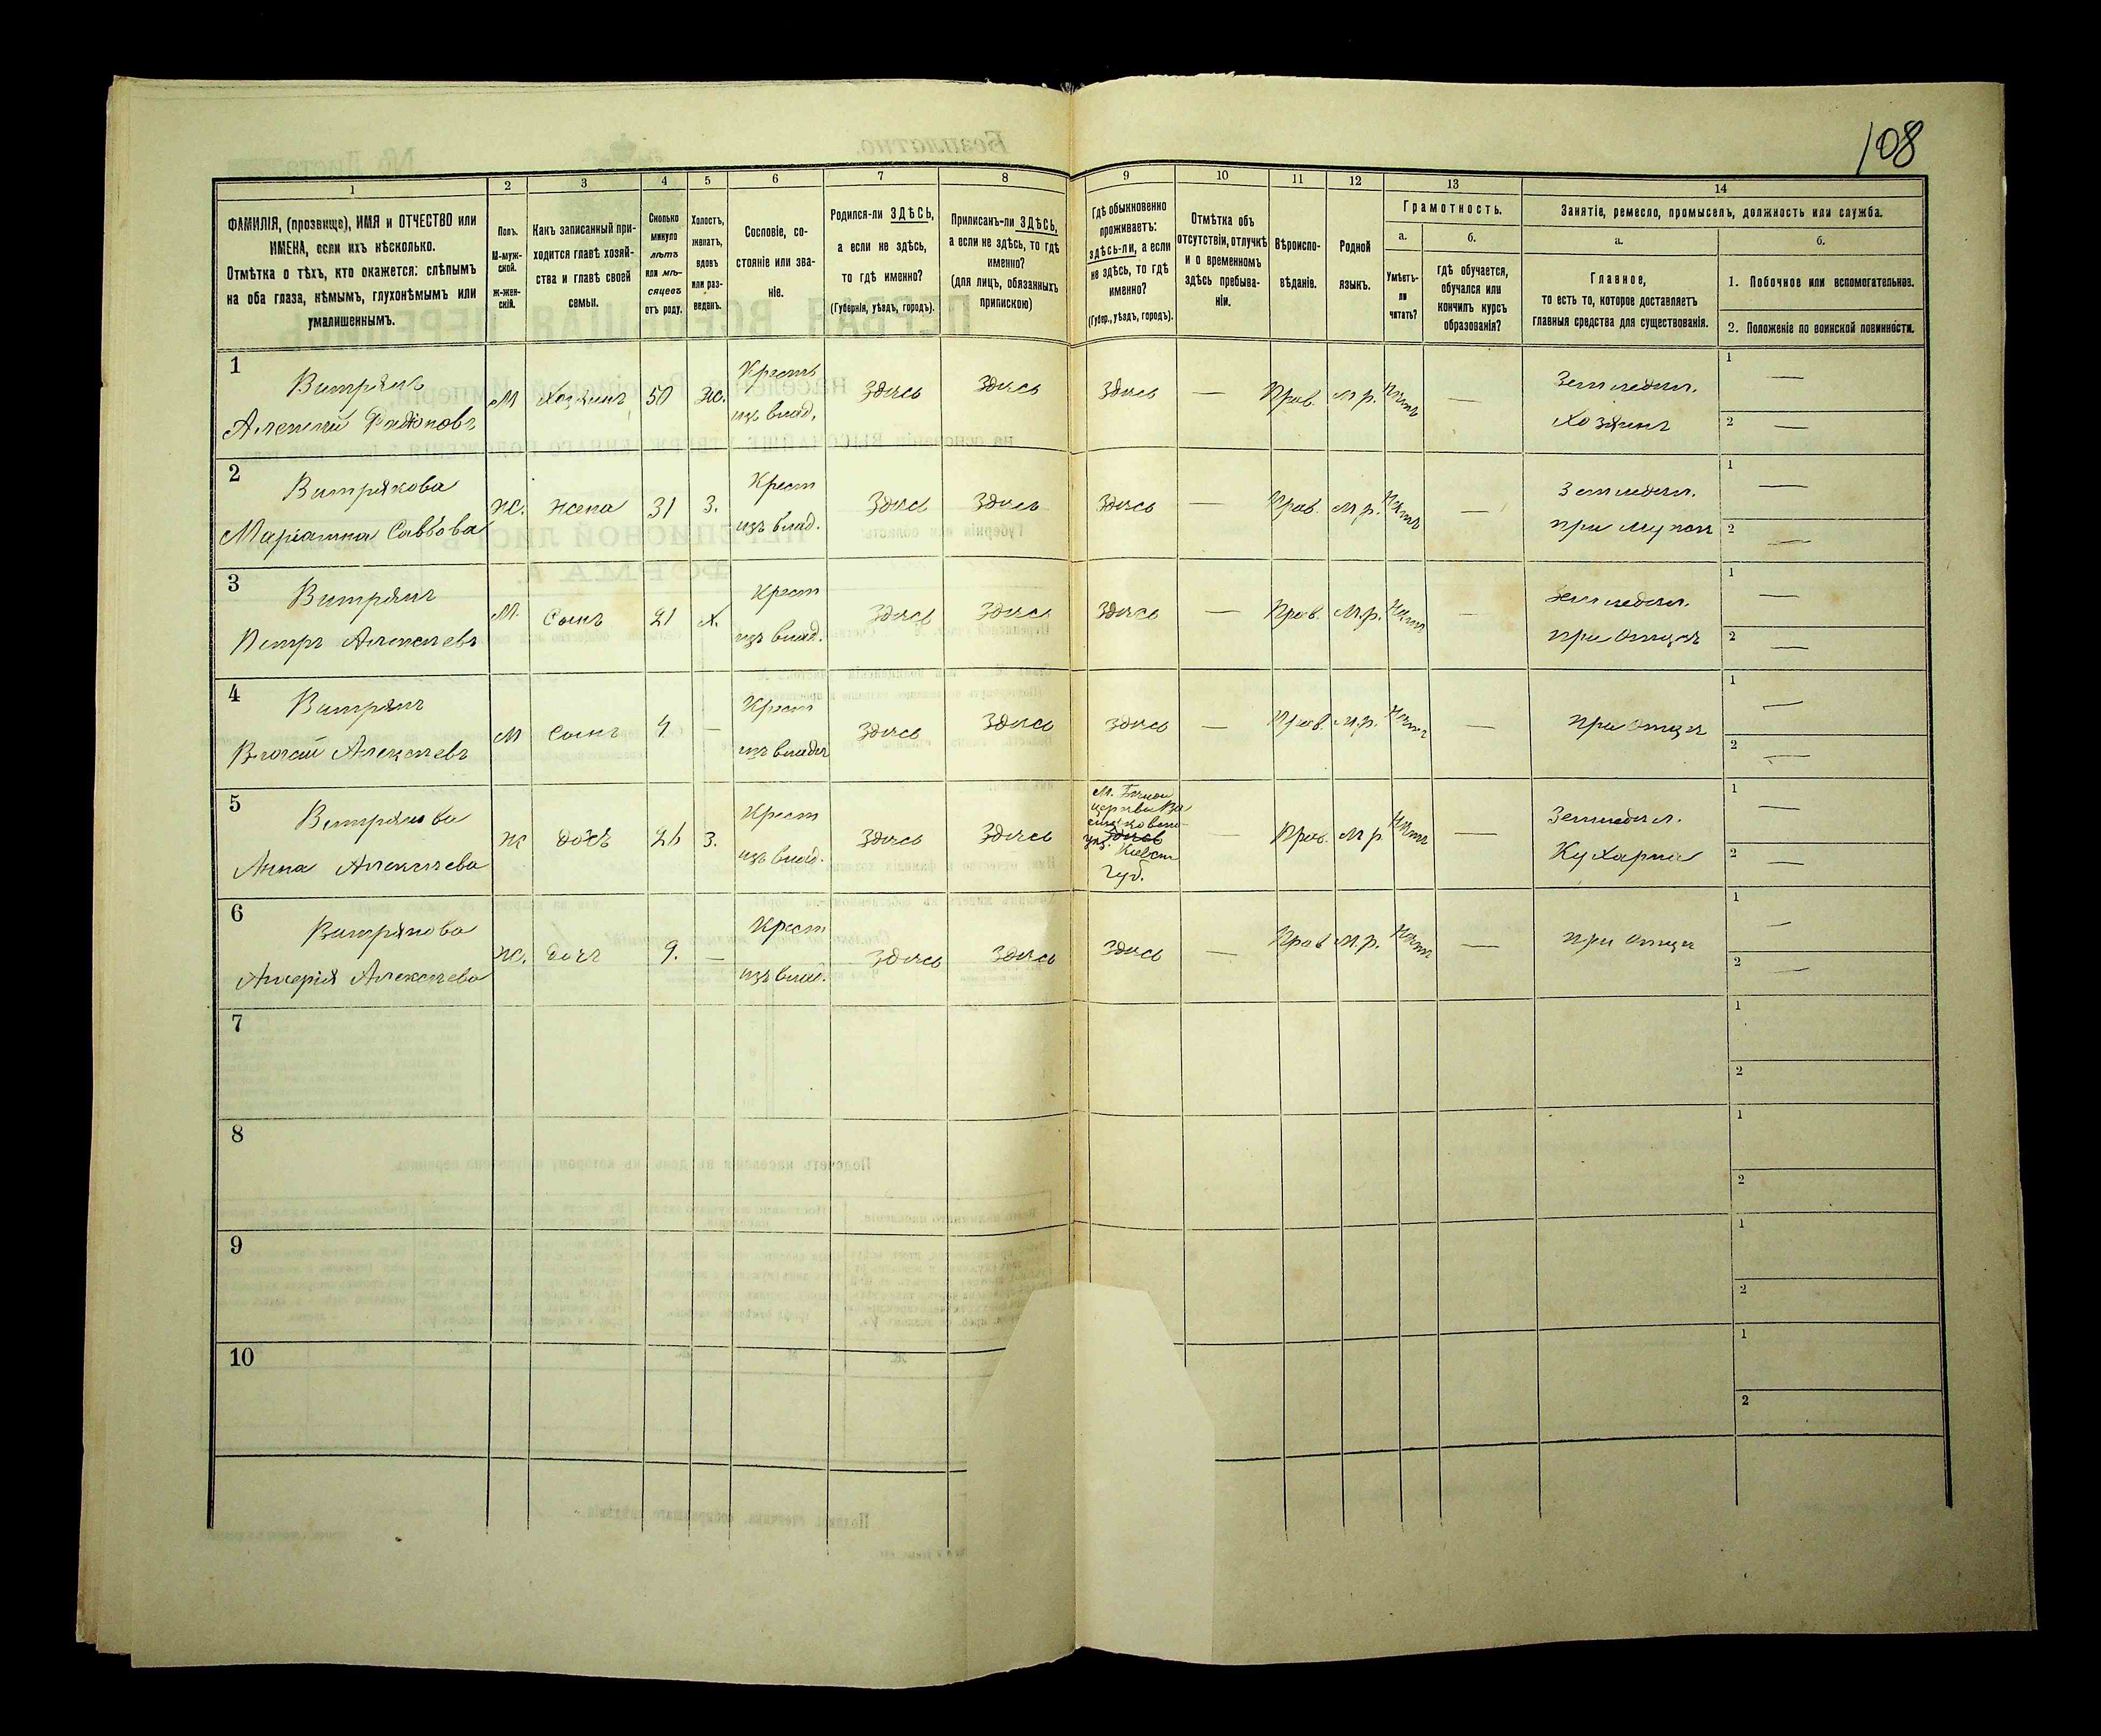 108
1 2 3 4 5 6 7 8 9 10 11 12 13 14
ФАМИЛІЯ, (прозвище), ИМЯ и ОТЧЕСТВО или
ИМЕНА, если ихъ нѣсколько.
Отмѣтка о тѣхъ, кто окажется: слѣпымъ
на оба глаза, нѣмымъ, глухонѣмымъ или
умалишеннымъ.
Полъ.
М-муж-
ской.
Ж-жен-
скій.
Какъ записанный при-
ходится главѣ хозяй-
ства и главѣ своей
семьи.
Сколько
минуло
лѣтъ
или мѣ-
сяцевъ
отъ роду.
Холостъ,
женатъ,
вдовъ
или раз-
веденъ.
Сословіе, со-
стояніе или зва-
ніе.
Родился-ли ЗДѢСЬ,
а если не здѣсь,
то гдѣ именно?
(Губернія, уѣздъ, городъ).
Приписанъ-ли ЗДѢСЬ,
а если не здѣсь, то гдѣ
именно?
(для лицъ, обязанныхъ
припискою)
Гдѣ обыкновенно
проживаетъ:
здѣсь-ли, а если
не здѣсь, то гдѣ
именно?
(Губер., уѣздъ, городъ).
Отмѣтка объ
отсутствіи, отлучкѣ
и о временномъ
здѣсь пребыва-
ніи.
Вѣроиспо-
вѣданіе.
Родной
языкъ.
Грамотность.
а.
Умѣетъ-
ли
читать?
б.
гдѣ обучается,
обучался или
кончилъ курсъ
образованія?
Занятіе, ремесло, промыселъ, должность или служба.
а.
Главное,
то есть то, которое доставляетъ
главныя средства для существованія.
б.
1. Побочное или вспомогательное.
2. Положеніе по воинской повинности.
1
Витрякъ
Алексѣй
М Хозяинъ 50 Ж. Крестъ
изъ влад.
здѣсь здѣсь здѣсь — Прав. М.р. Нѣтъ — Земледѣл.
Хозяинъ
1 —
2 —
2
Витрякова
Маріанна Саввова
Ж. жена 31 З. Крест
изъ влад.
здѣсь здѣсь здѣсь — Прав. М.р. Нѣтъ — Земледѣл.
при мужѣ
1 —
2 —
3
Витрякъ
Петръ Алексѣевъ
М. Сынъ 21 Х. Крест
изъ влад.
здѣсь здѣсь здѣсь — Прав. М.р. Нѣтъ — Земледѣл.
при отцѣ
1 —
2 —
4
Витрякъ
Алексѣевъ
М Сынъ 4 — Крест
изъ владѣ
здѣсь здѣсь здѣсь — Прав. М.р. Нѣтъ — при отцѣ
1 —
2 —
5
Витрякова
Анна Алексѣева
Ж дочь 26 З. Крест
изъ влад.
здѣсь здѣсь
М. Бѣлой
церкви Ва
сильковска-
здѣсь
уѣз. Кіевск
Губ.
— Прав. М.р. Нѣтъ — Земледѣл.
Кухарка
1 —
2 —
6
Витрякова
Алексѣева
Ж. дочь 9. — Крест
изъ влад.
здѣсь здѣсь здѣсь — Прав М.р. Нѣтъ — при отцѣ
1 —
2 —
7
1
2
8
1
2
9
1
2
10
1
2